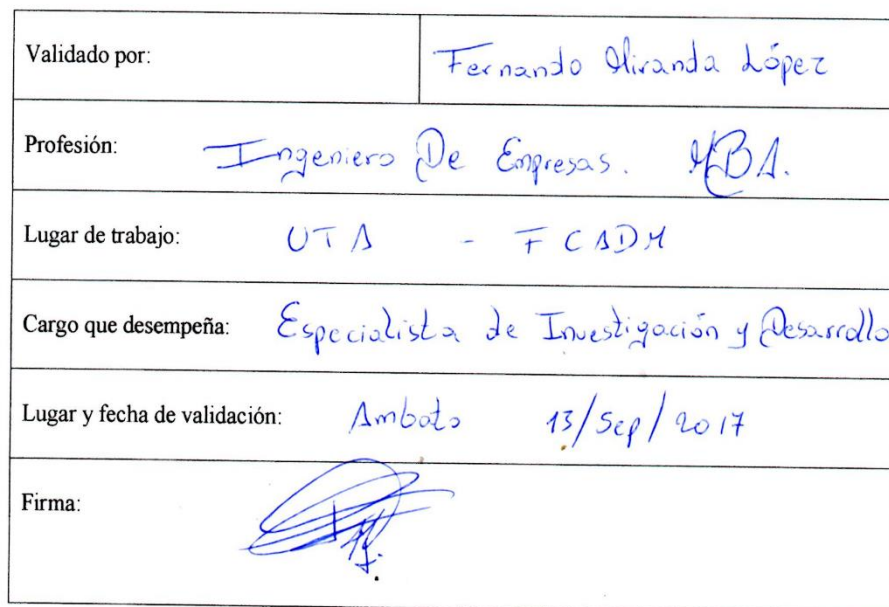 Validado por: Fernando Miranda López
Profesión: Ingeniero De Empresas. MBA.
Lugar de trabajo: UTA - FCADM
Cargo que desempeña: Especialista de Investigación y Desarrollo
Lugar y fecha de validación: Ambato 13/Sep/2017
Firma: